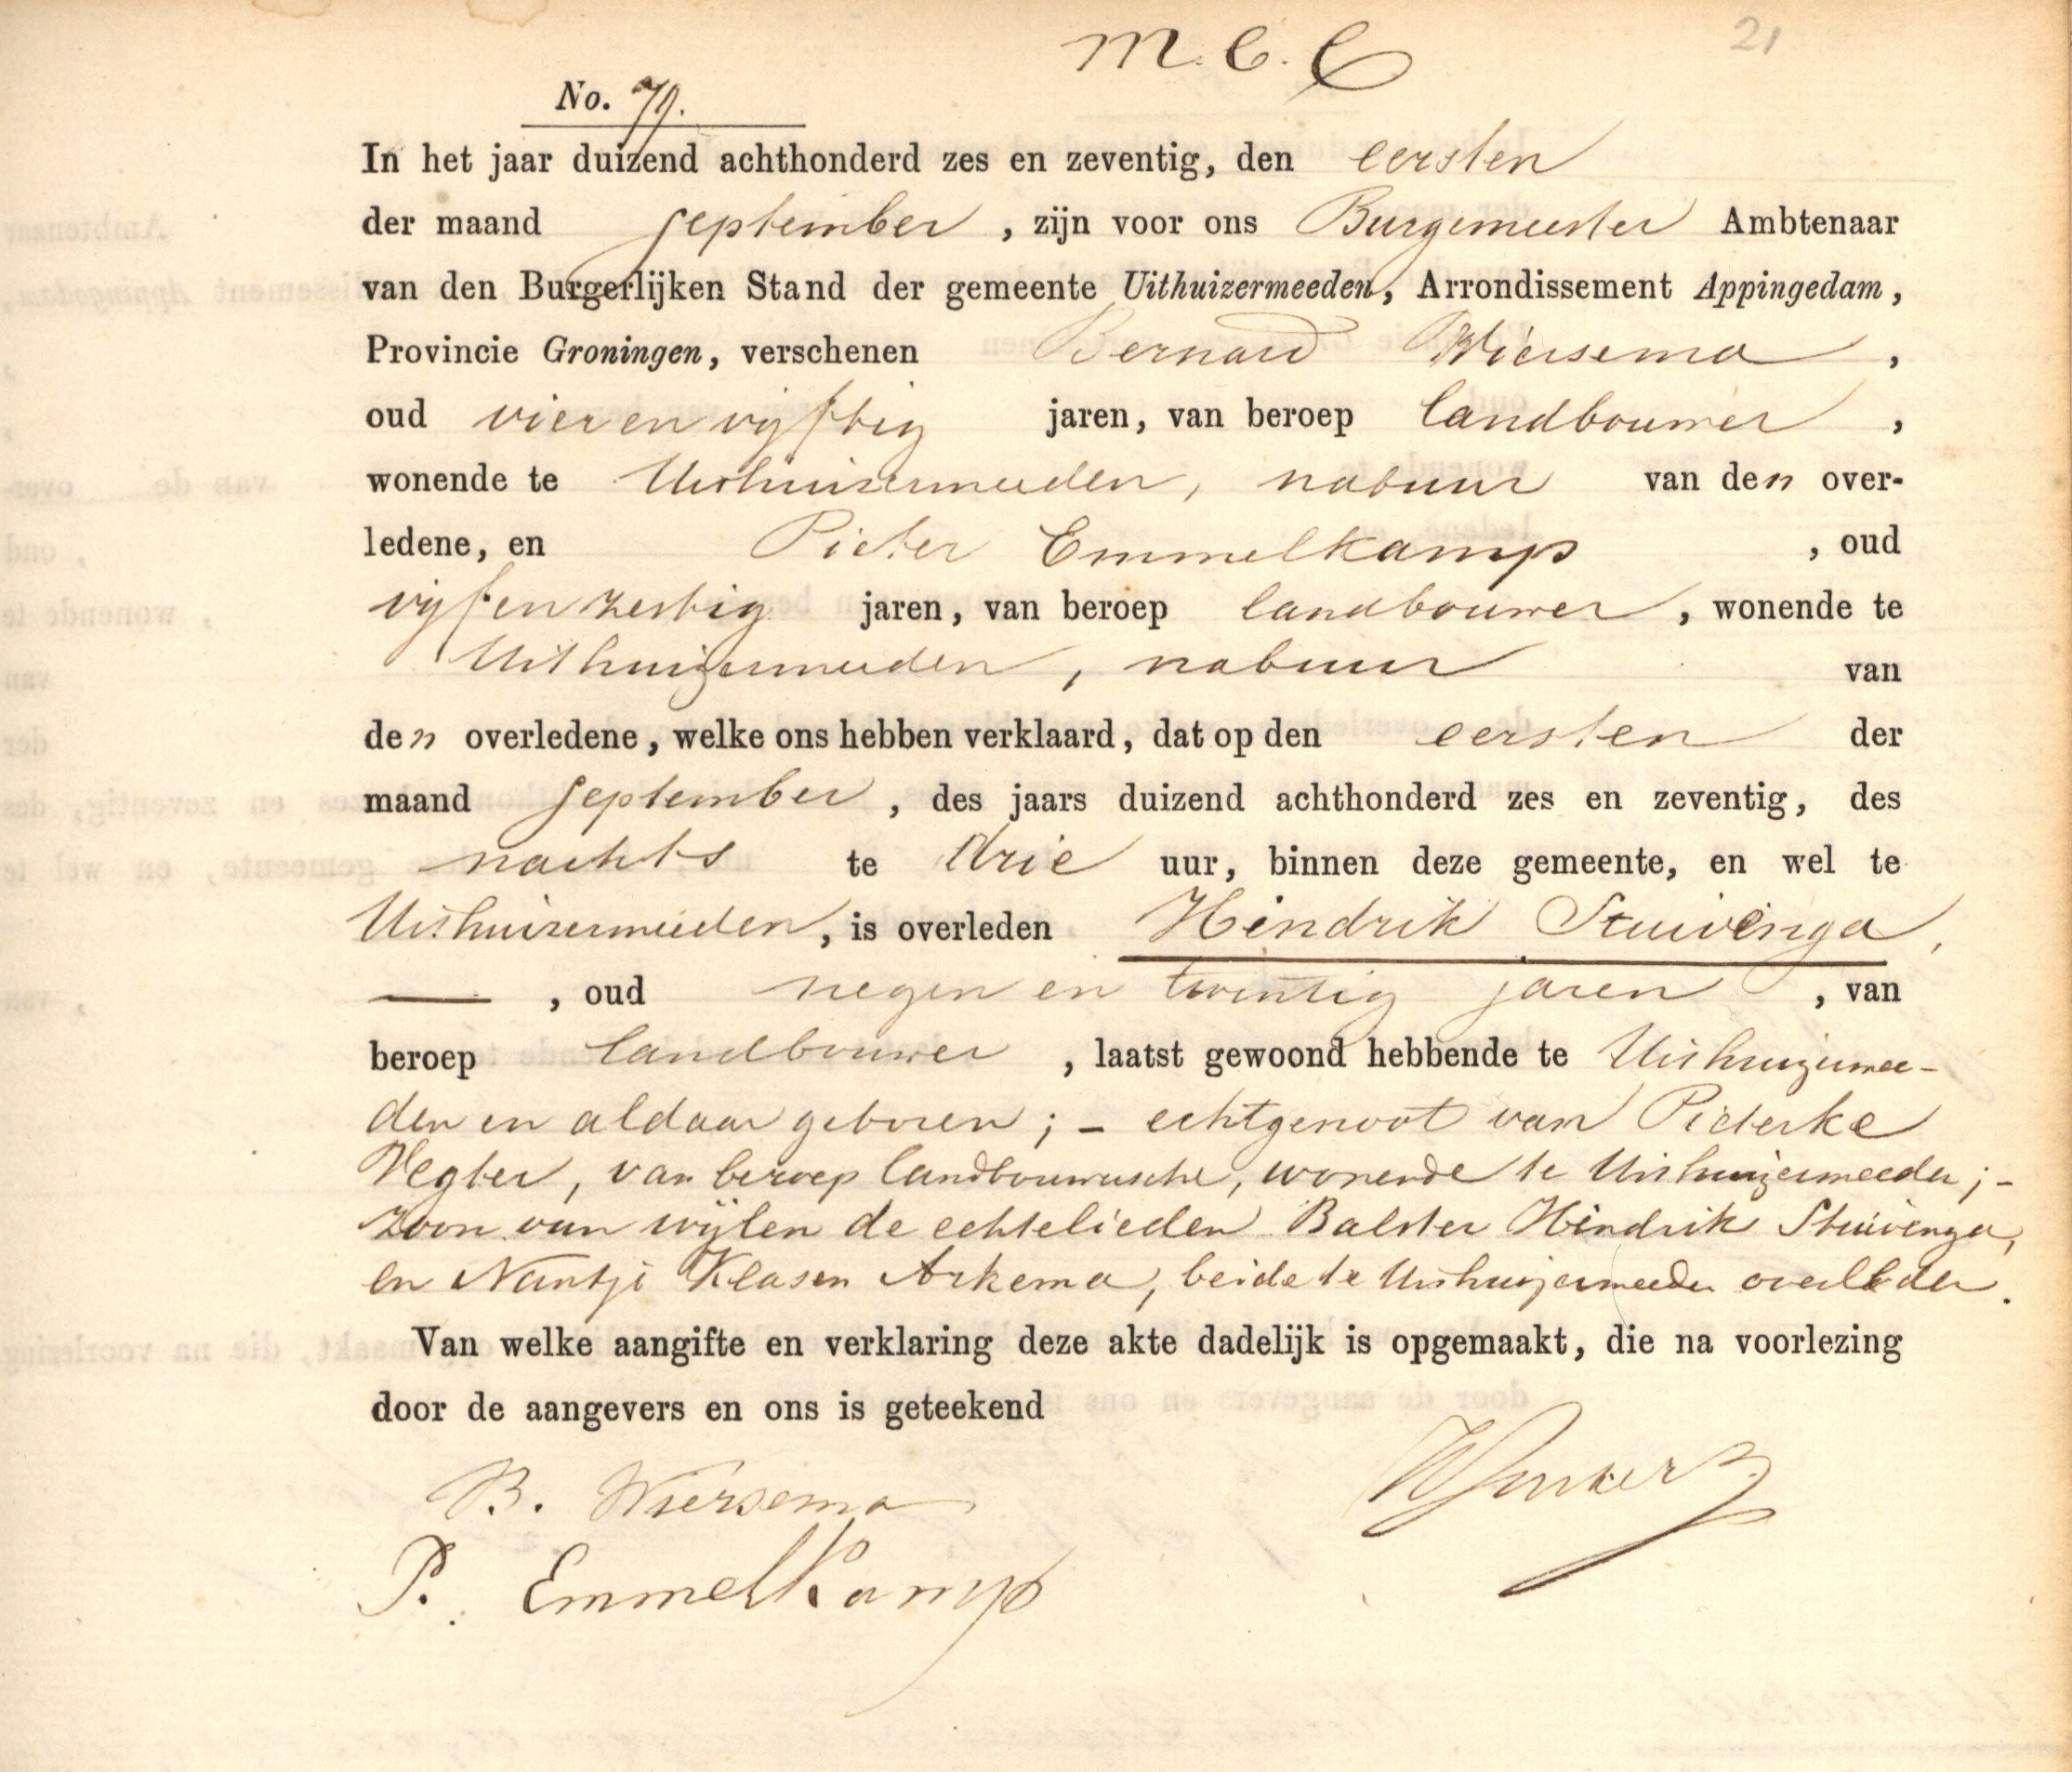 M. C. C
21
No. 79.
In het jaar duizend achthonderd zes en zeventig, den eersten
der maand September, zijn voor ons Burgemeester Ambtenaar
van den Burgerlijken Stand der gemeente Uithuizermeeden, Arrondissement Appingedam,
Provincie Groningen, verschenen Bernard Wiersema,
oud vier en vijftig jaren, van beroep landbouwer,
wonende te Uithuizermeeden, nabuur van den over-
ledene, en Pieter Emmelkamp, oud
vijf en zestig jaren, van beroep landbouwer, wonende te
Uithuizermeeden, nabuur van
den overledene, welke ons hebben verklaard, dat op den eersten der
maand September, des jaars duizend achthonderd zes en zeventig, des
nachts te drie uur, binnen deze gemeente, en wel te
Uithuizermeeden, is overleden Hindrik Stuivinga,
—, oud negen en twintig jaren, van
beroep landbouwer, laatst gewoond hebbende te Uithuizermee-
den en aldaar geboren; - echtgenoot van Pieterke
Vegter, van beroep landbouwersche, wonende te Uithuizermeeden; -
zoon van wijlen de echtelieden Balster Hindrik Stuivinga,
en Nantje Klasen Arkema, beide te Uithuizermeeden overleden.
Van welke aangifte en verklaring deze akte dadelijk is opgemaakt, die na voorlezing
door de aangevers en ons is geteekend
B. Wiersema
P. Emmelkamp